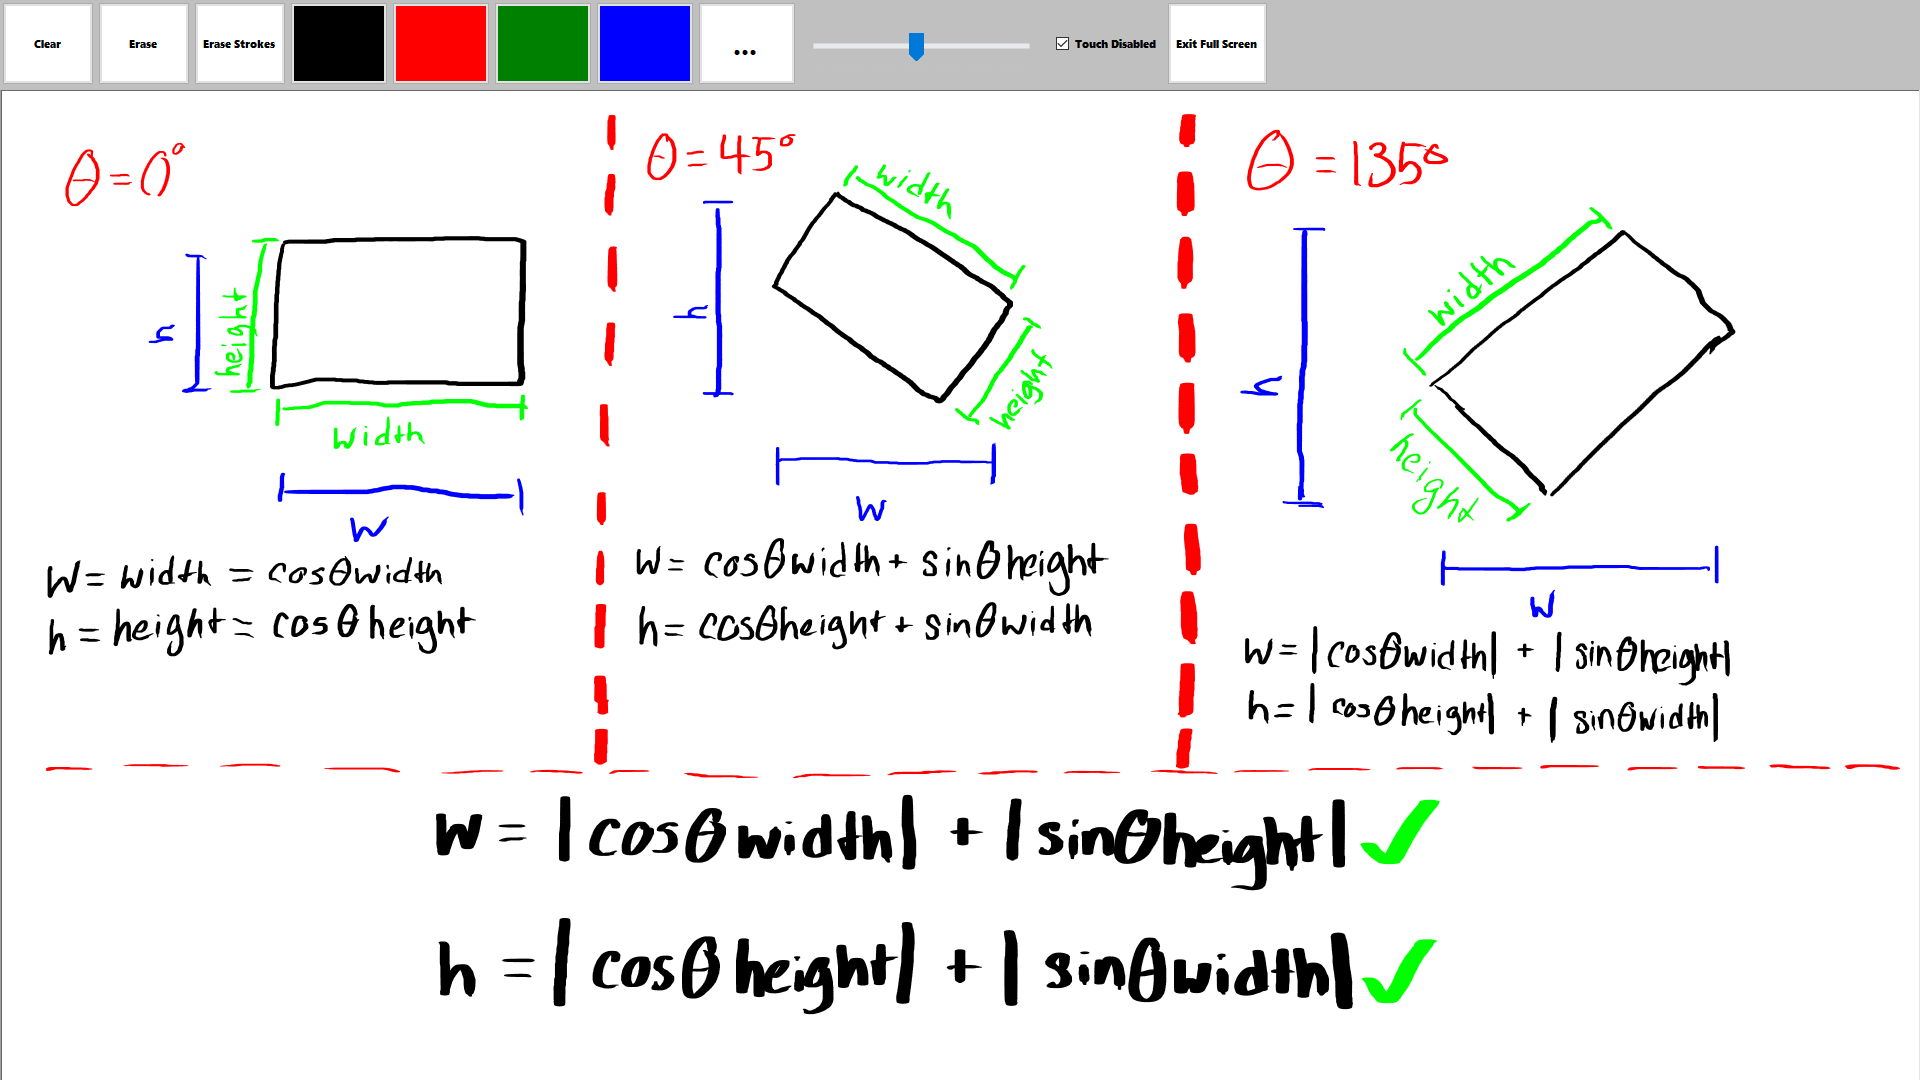 Clear
Erase
Erase Strokes
...
Touch Disabled
Exit Full Screen
θ = 0°
h
height
width
w
w = width = cosθ width
h = height = cosθ height
θ = 45°
width
h
height
w
w = cosθ width + sinθ height
h = cosθ height + sinθ width
θ = 135°
width
h
height
w
w = |cosθ width| + |sinθ height|
h = |cosθ height| + |sinθ width|
w = |cosθ width| + |sinθ height| ✓
h = |cosθ height| + |sinθ width| ✓